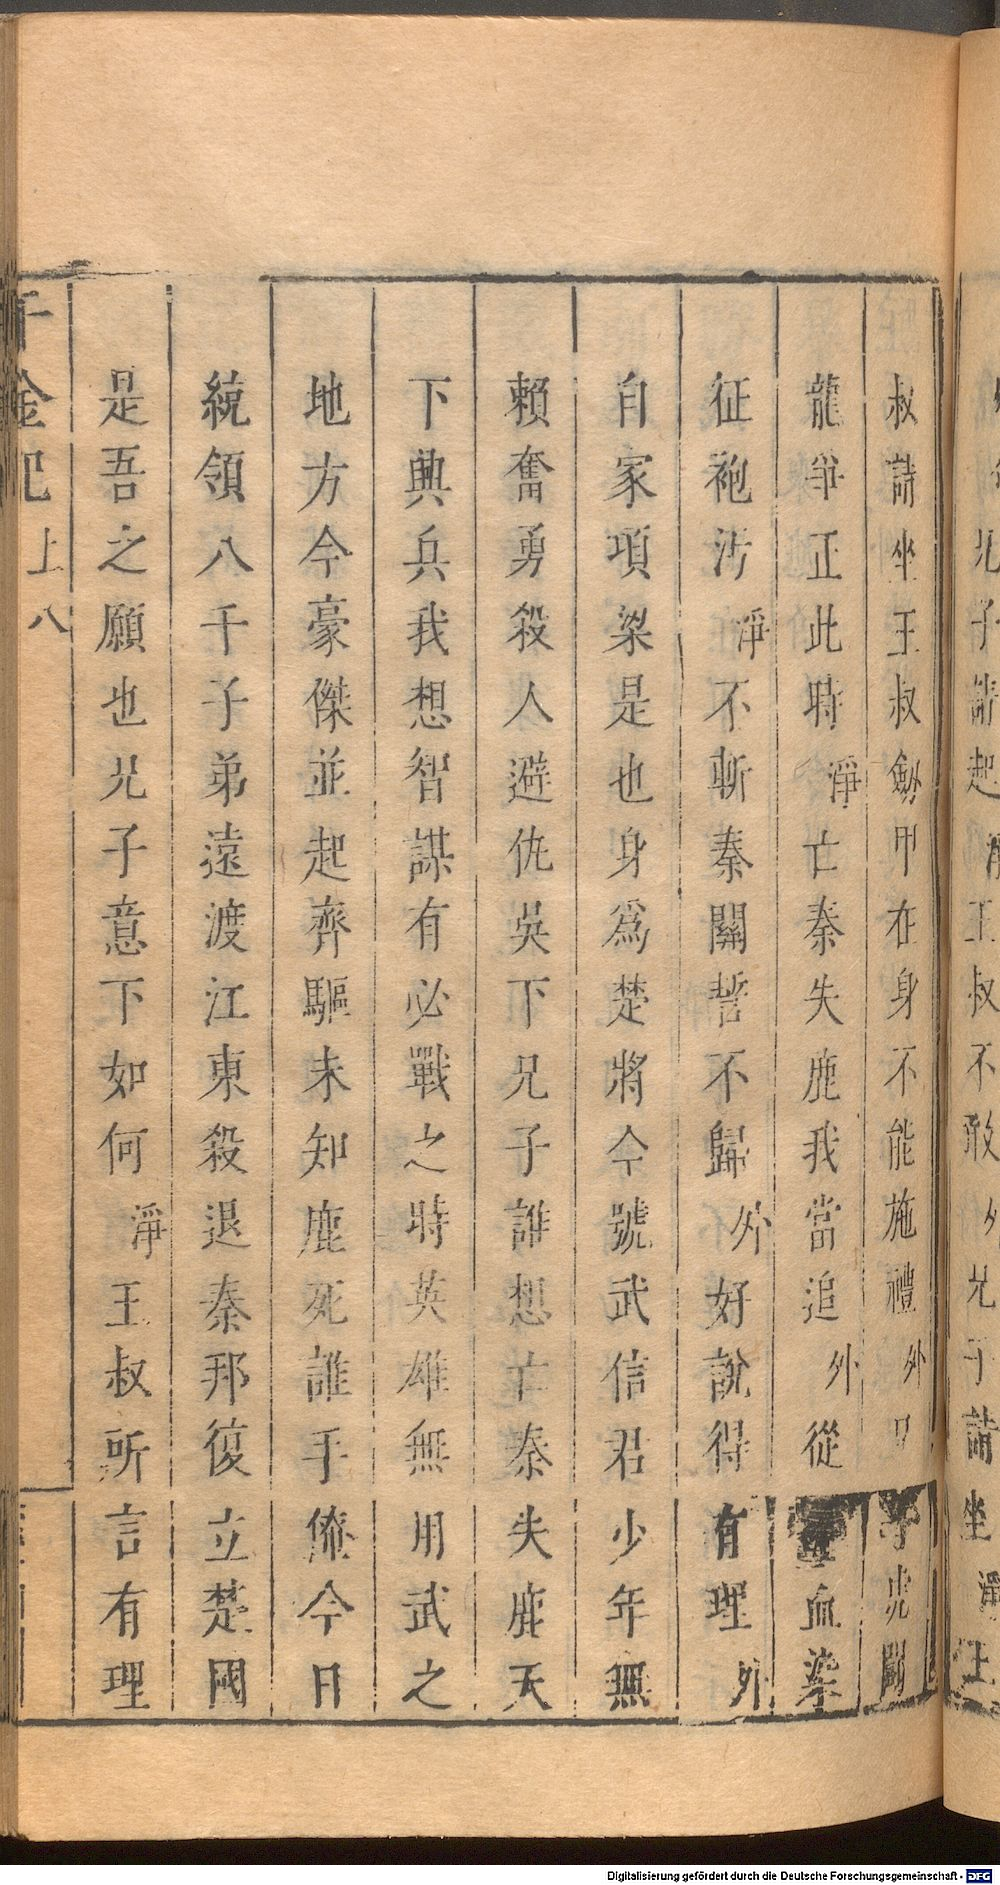 兄子請起淨王叔不敢外兄子請坐淨上
叔請坐王叔劒甲在身不能施禮外只子虎鬭
龍爭正此時淨亡秦失鹿我當追外從血染
征袍污淨不斬秦關誓不歸外好說得有理外
自家項梁是也身爲楚將今號武信君少年無
賴奮勇殺人避仇吳下兄子誰想亡秦失鹿天
下興兵我想智謀有必戰之時英雄無用武之
地方今豪傑並起齊驅未知鹿死誰手俺今日
統領八千子弟遠渡江東殺退秦邦復立楚國
是吾之願也兄子意下如何淨王叔所言有理
千金記 上 八
Digitalisierung gefördert durch die Deutsche Forschungsgemeinschaft - DFG